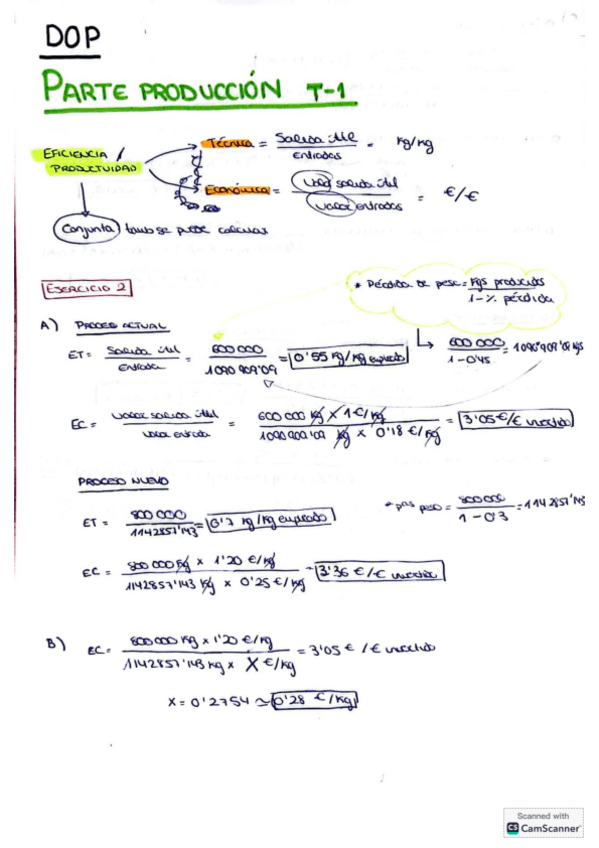 DOP
PARTE PRODUCCIÓN T-1
EFICIENCIA / PRODUCTIVIDAD
Técnica = Salida útil / entradas = kg/kg
Económica = Valor salida útil / Valor entradas = €/€
Conjunta tamb se puede calcular
EJERCICIO 2
* Pérdida de peso = Kgs producidos / 1 - % pérdida
A) PROCESO ACTUAL
ET = Salida útil / Entrada = 600 000 / 1090 909'09 = 0'55 kg/kg empleado
600 000 / 1 - 0'45 = 1090'909'09 kgs
EC = Valor salida útil / valor entrada = 600 000 kg x 1 €/kg / 1090 909'09 kg x 0'18 €/kg = 3'05 €/€ invertido
PROCESO NUEVO
ET = 800 000 / 1142857'143 = 0'7 kg/kg empleado
* peso = 800 000 / 1 - 0'3 = 1142857'143
EC = 800 000 kg x 1'20 €/kg / 1142857'143 kg x 0'25 €/kg = 3'36 €/€ invertido
B) EC = 800 000 kg x 1'20 €/kg / 1142857'143 kg x X €/kg = 3'05 € /€ invertido
X = 0'2754 ≃ 0'28 €/kg
Scanned with
CS CamScanner